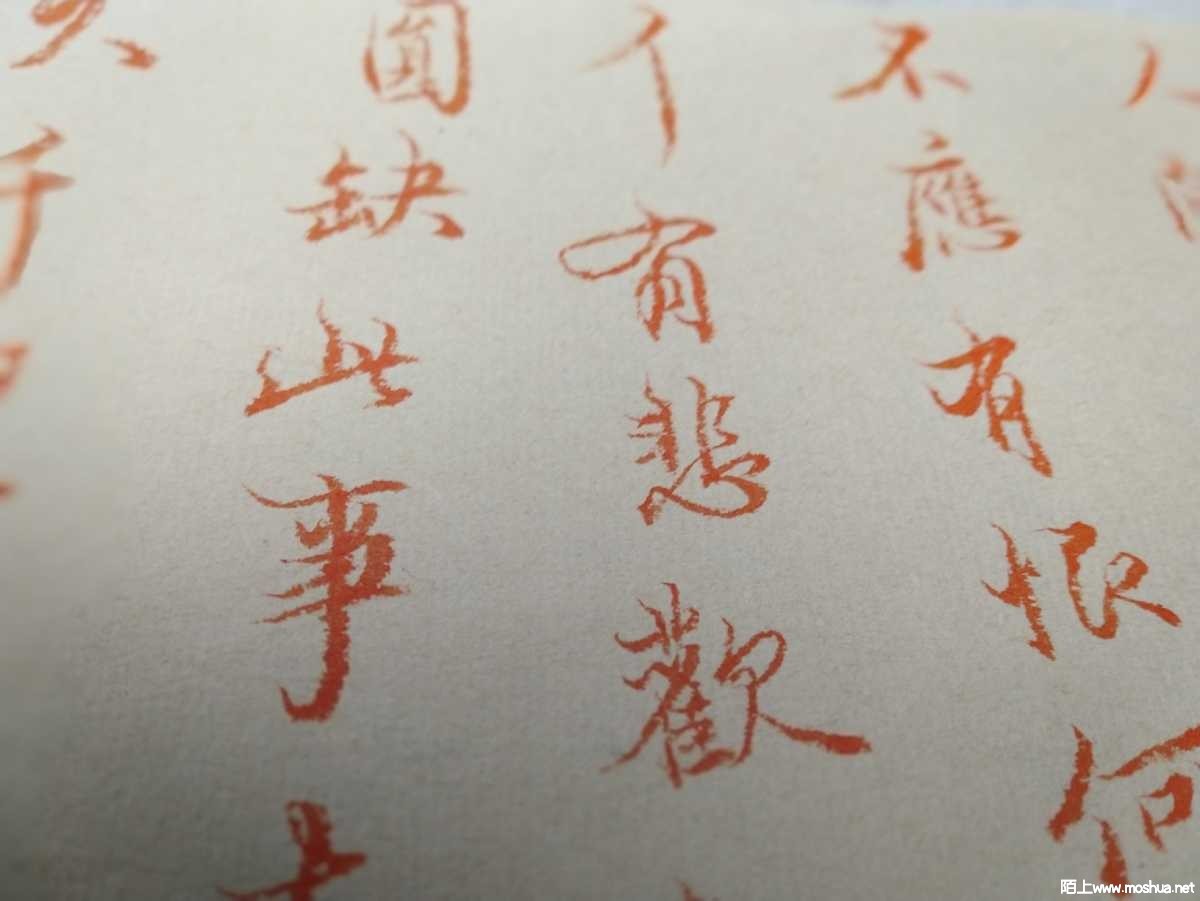 不應有恨何
人有悲歡
圓缺此事
久千
陌上www.moshua.net